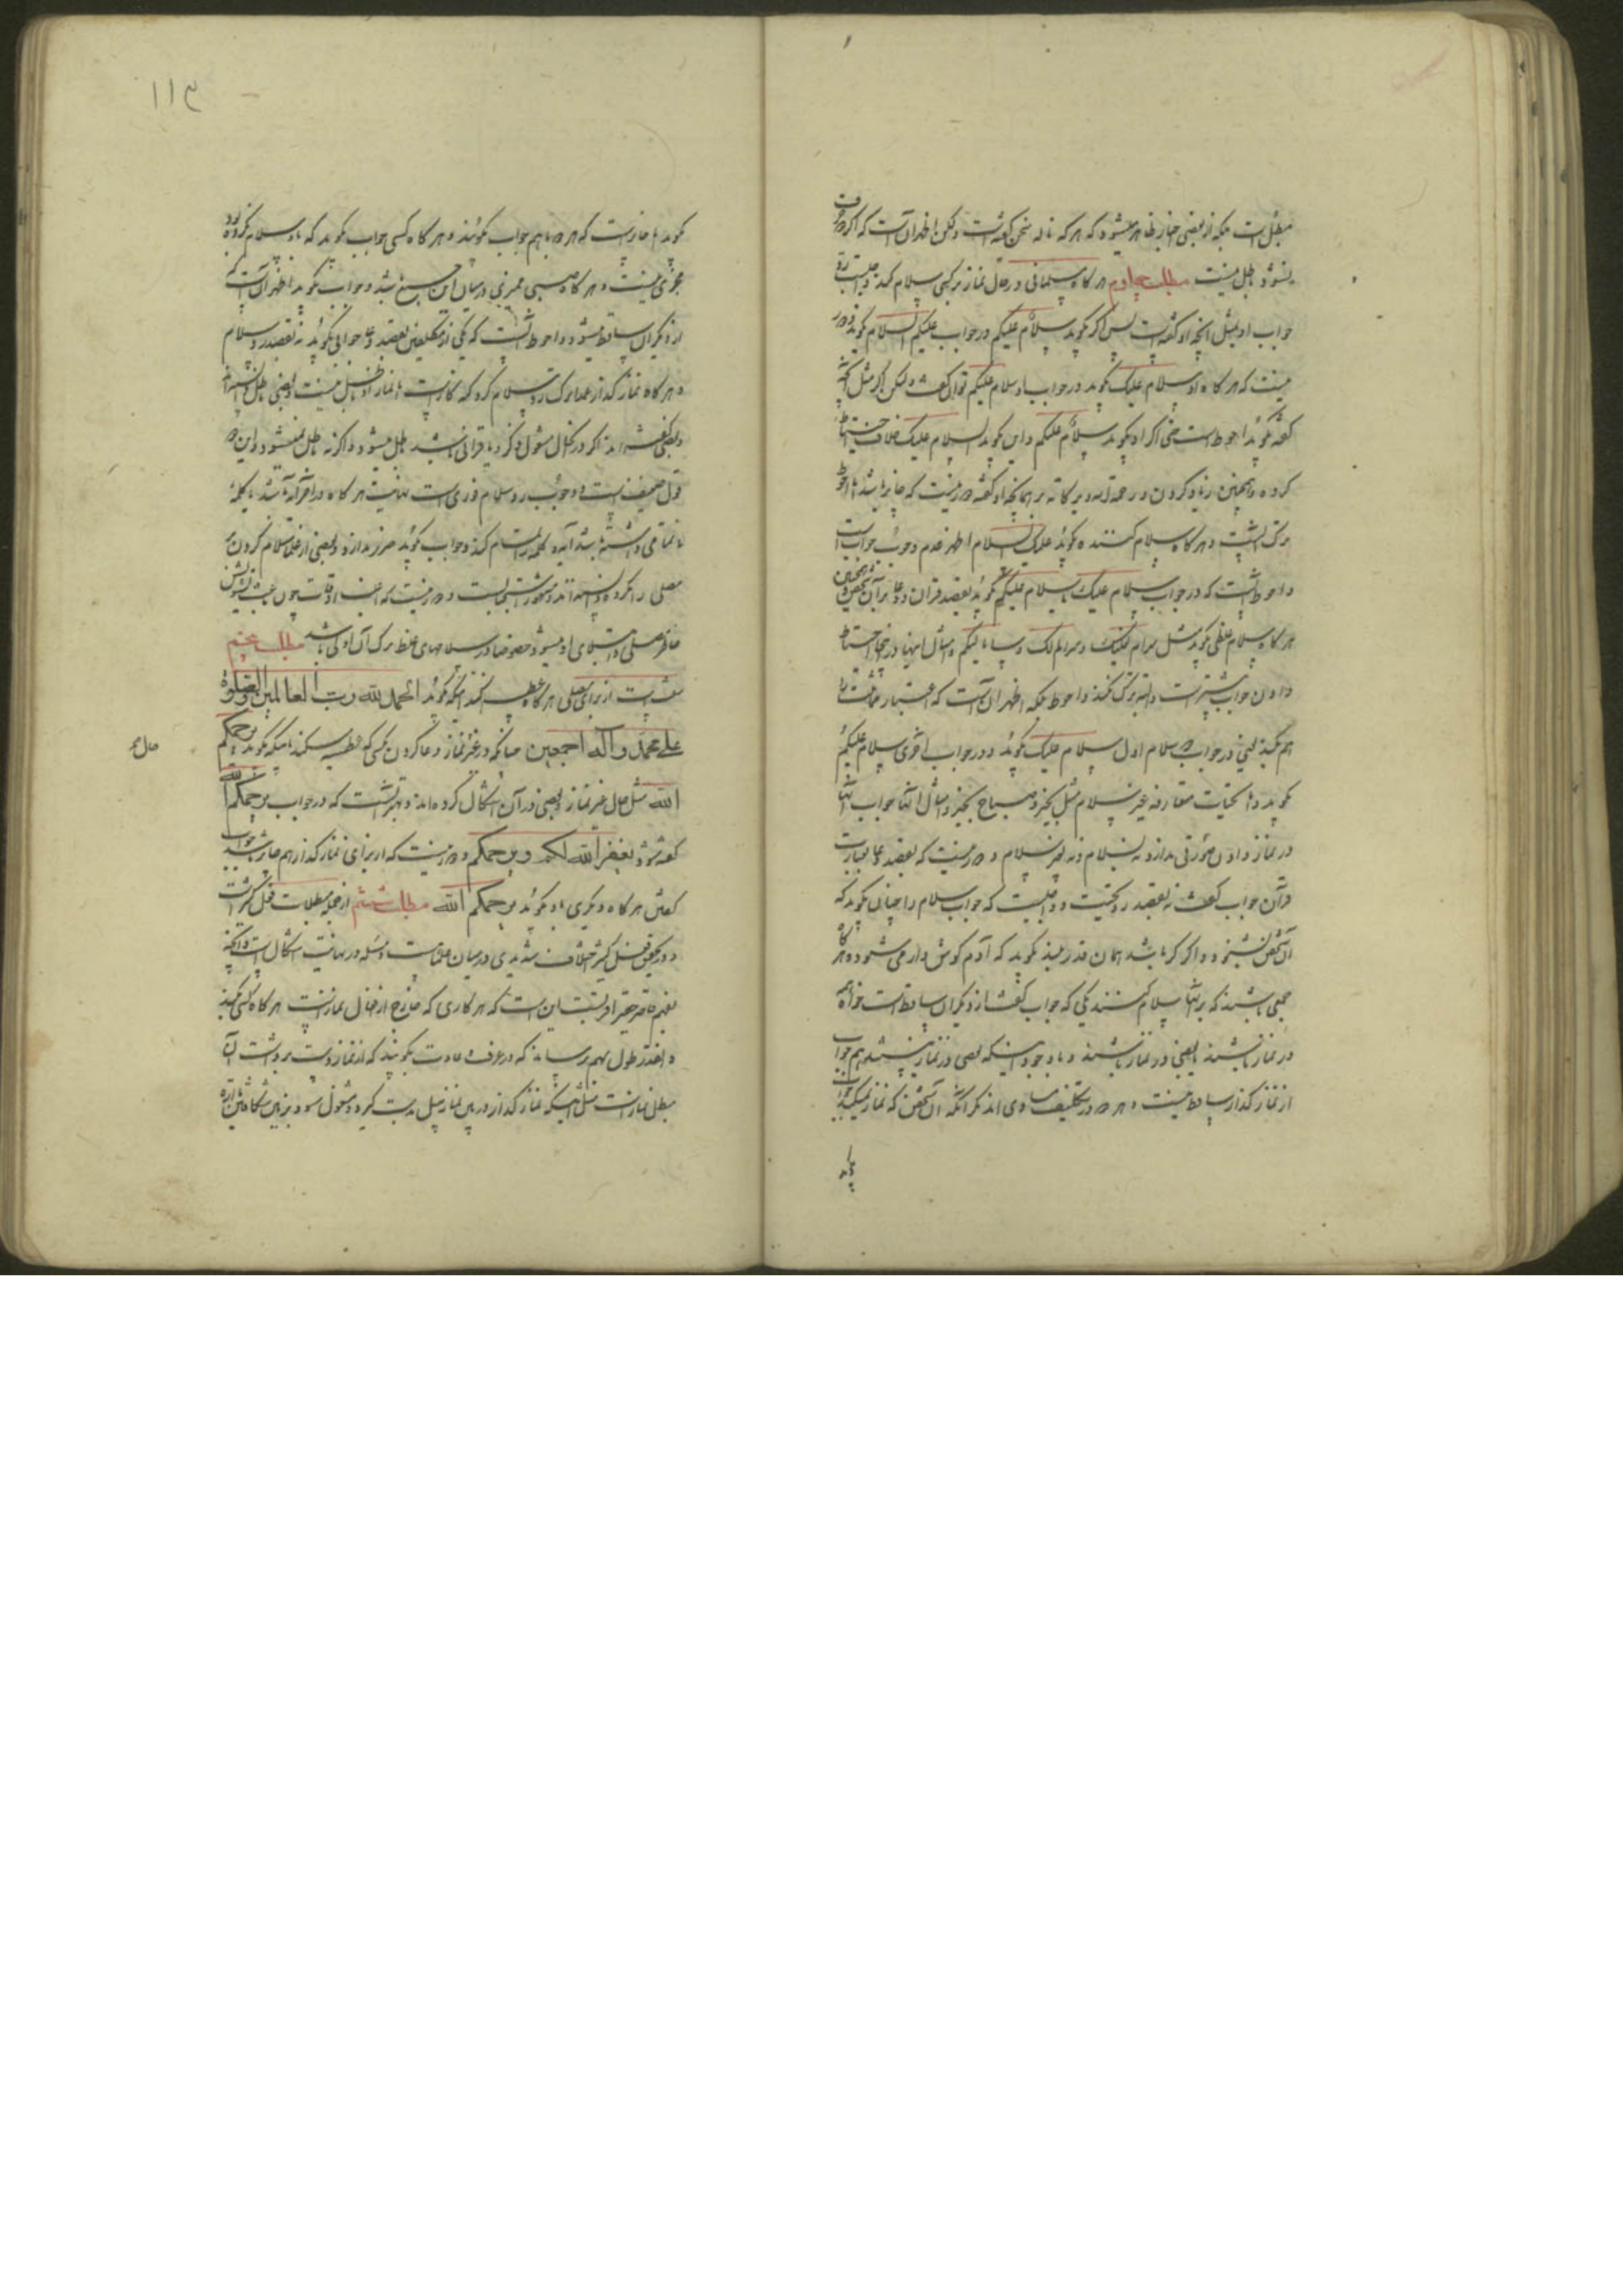 مبطل است بلکه از بعضی اخبار ظاهر میشود که هر که ناله سخن گفته است ولکن اظهر آن است که اگر حرف
نشود باطل نیست مطلب چهارم هر گاه مسلمانی در حال نماز بر کسی سلام کند واجبست رد
جواب او بمثل آنچه او گفته است پس اگر گوید سلام علیکم در جواب علیکم السلام نگوید و ضرر
نیست که هر گاه او سلام علیک گوید در جواب او سلام علیکم توان گفت ولکن اگر مثل آنچه
گفته گوید احوط است حتی اگر او گوید سلام علیکم و این گوید السلام علیک خلاف احتیاط
کرده و همچنین زیاد کردن و رحمة الله و برکاته بر آنچه او گفته ضرر نیست که جایز باشد اما احوط
ترک است و هر گاه سلام کننده گوید علیک السلام اظهر عدم وجوب جواب است
و احوط آنست که در جواب سلام علیک یا سلام علیکم گوید بقصد قرآن و دعا بر آن شخص و همچنین
هر گاه سلام غلطی گوید مثل سرام علیک و سرام لک و سیاما لیکم و امثال اینها در اینجا احتیاط
دادن جواب بیشتر است و البته ترک نکند و احوط بلکه اظهر آن است که اعتبار مماثلت را
هم بکند یعنی در جواب سلام اول سلام علیک گوید و در جواب اخری سلام علیکم
گوید و اما تحیات متعارفه غیر سلام مثل بخیر و صباح بخیر و امثال آنها جواب آنها
در نماز دادن صورتی ندارد نه بسلام و نه بغیر سلام و ضرر نیست که بقصد دعا بعبارت
قرآن جواب گفت نه بقصد رد تحیت و واجبست که جواب سلام را چنانی بگوید که
آن شخص بشنود و اگر کر باشد همان قدر بلند بگوید که آدم گوش دار می شنود و هر گاه
جمعی باشند که بر آنها سلام کنند یکی که جواب گفت از دیگران ساقط است خواه همه
در نماز باشند یا بعضی در نماز باشند و با وجود اینکه بعضی در نماز نیستند هم جواب
از نماز گذار ساقط نیست و هر دو در تکلیف مساوی اند مگر آنکه آن شخص که نماز نمیکند جواب
گوید
۱۱۳
گوید اما جایز است که هر دو با هم جواب گویند و هر گاه کسی جواب گوید که باو سلام نکرده بود
مجزی نیست و هر گاه صبی ممیزی در میان این جمع باشد و جواب گوید اظهر آن است که
از دیگران ساقط میشود و احوط آنست که یکی از مکلفین بقصد دعا جوابی بگوید نه بقصد رد سلام
و هر گاه نماز گذار عمدا ترک رد سلام کرد گنه کار است اما نماز او باطل نیست و بعضی باطل دانسته اند
و بعضی گفته اند اگر در آنحال مشغول ذکر و یا قرائتی باشد باطل میشود و اگر نه باطل نمیشود و این دو
قول ضعیف است و وجوب رد سلام فوری است نهایت هر گاه در اقرا آیه باشد یا کلمهٔ
ناتمامی داشته باشد آیه و کلمه را تمام کند و جواب گوید ضرر ندارد و بعضی از علما سلام کردن بر
مصلی را مکروه دانسته اند و مشهور استحبابست و ضرر نیست که اغلب اوقات چون باعث تشویش
خاطر مصلی و ابتلای او میشود خصوصا در سلامهای غلط ترک آن اولی باشد مطلب پنجم
سنت است از برای مصلی هر گاه عطسه کند آنکه گوید الحمد لله رب العالمین و الصلوة
علی محمد و آله اجمعین چنانکه در غیر نماز و دعا کردن بکسی که عطسه میکند باینکه گوید یرحمکم
حال هم
الله مثل حال غیر نماز و بعضی در آن اشکال کرده اند و بهتر آنست که در جواب یرحمکم الله
گفته شود یغفر الله لکم و یرحمکم و ضرر نیست که از برای نماز گذار هم جایز باشد جواب
گفتن هر گاه دیگری باو گوید یرحمکم الله مطلب ششم از جمله مبطلات فعل کثیر است
و در تحقیق فعل کثیر اختلاف شدیدی در میان علماست و مسئله در نهایت اشکال است و آنچه
بفهم قاصر حقیر اقربست این است که هر کاری که خارج از افعال نماز است هر گاه کسی بکند
و آنقدر طول بهم رساند که در عرف و عادت بگویند که از نماز دست برداشت آن
مبطل نماز است مثل اینکه نماز گذار در بین نماز بیل بدست گیرد و مشغول شود و بزمین شکافتن یا اره